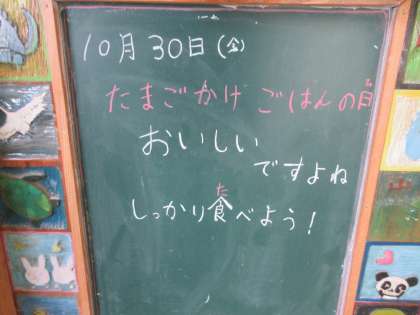 10月30日(金)
たまごかけごはんの日
おいしい
ですよね
しっかり食べよう!